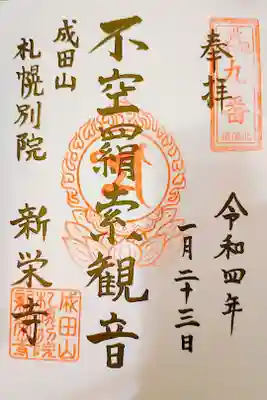 奉拝
令和四年
一月二十三日
不空羂索観音
成田山
札幌別院
新栄寺
九番
成田山